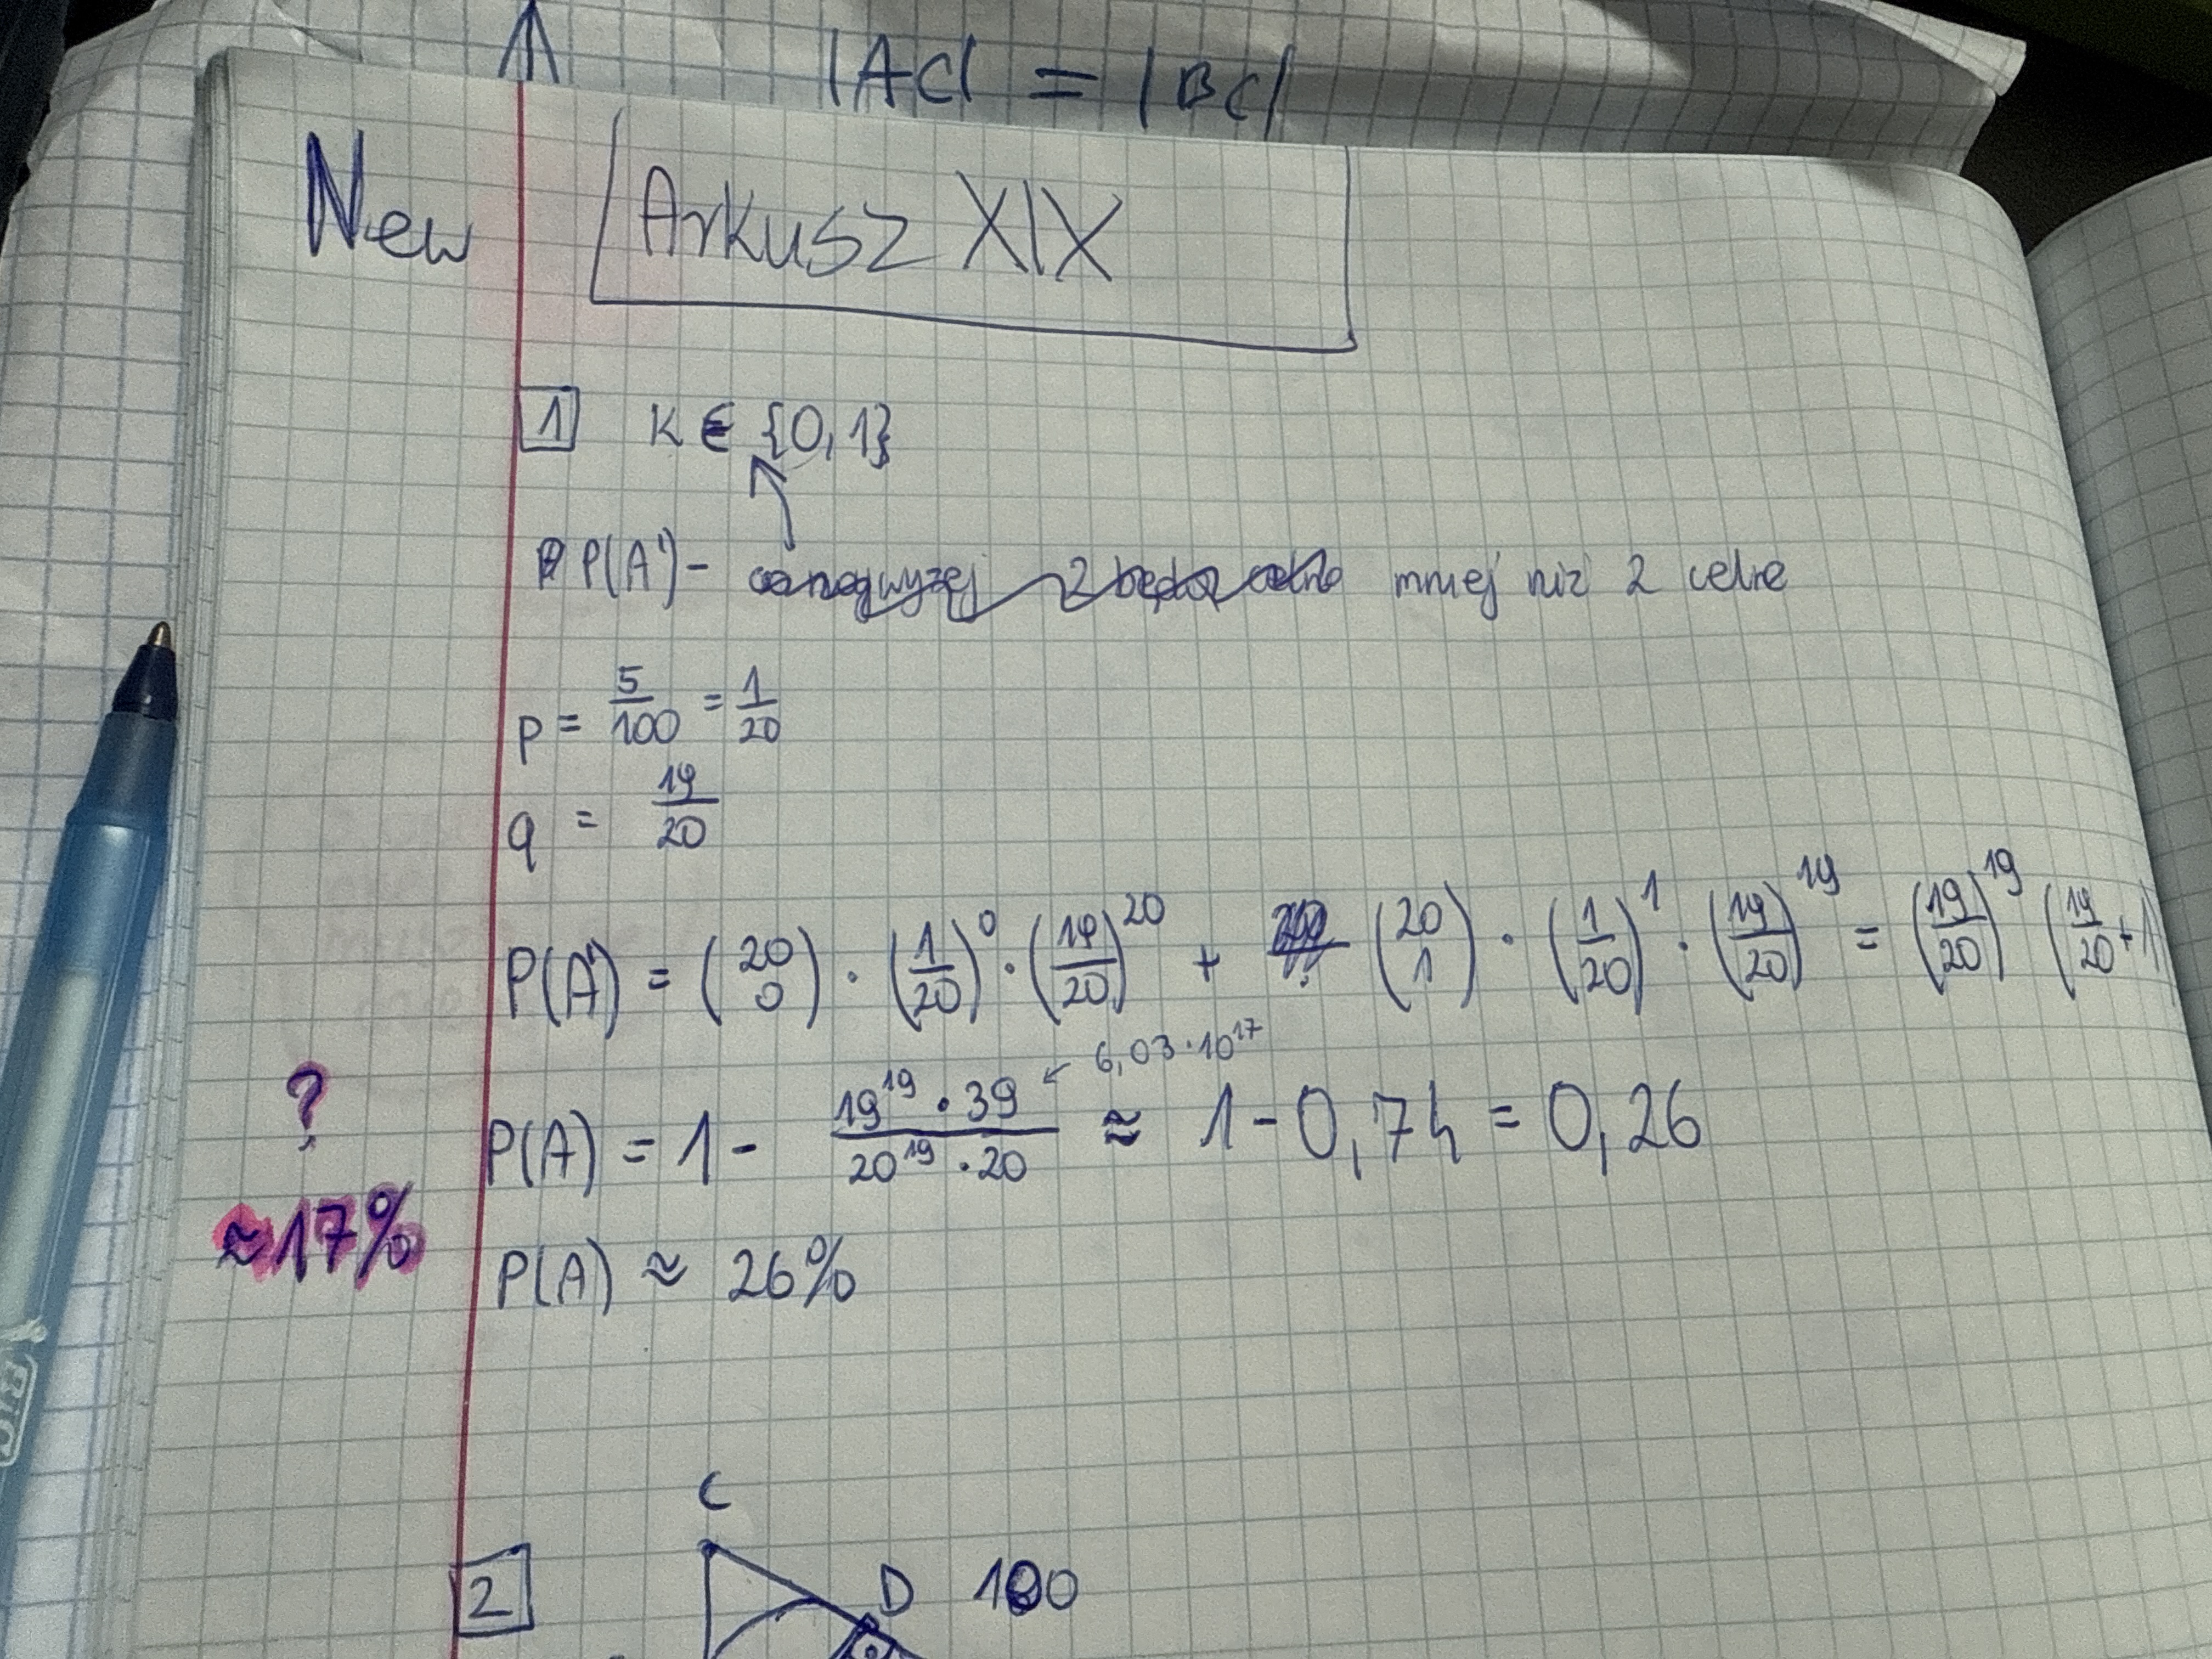 |AC| = |BC|
New Arkusz XIX
1 K ∈ {0,1}
P(A') - mniej niż 2 celne
p = 5/100 = 1/20
q = 19/20
P(A') = (20 0) · (1/20)^0 · (19/20)^20 + (20 1) · (1/20)^1 · (19/20)^19 = (19/20)^19 (19/20 + 1)
6,03 · 10^17
? P(A) = 1 - 19^19 · 39 / 20^19 · 20 ≈ 1 - 0,74 = 0,26
≈17% P(A) ≈ 26%
C
2 D 100